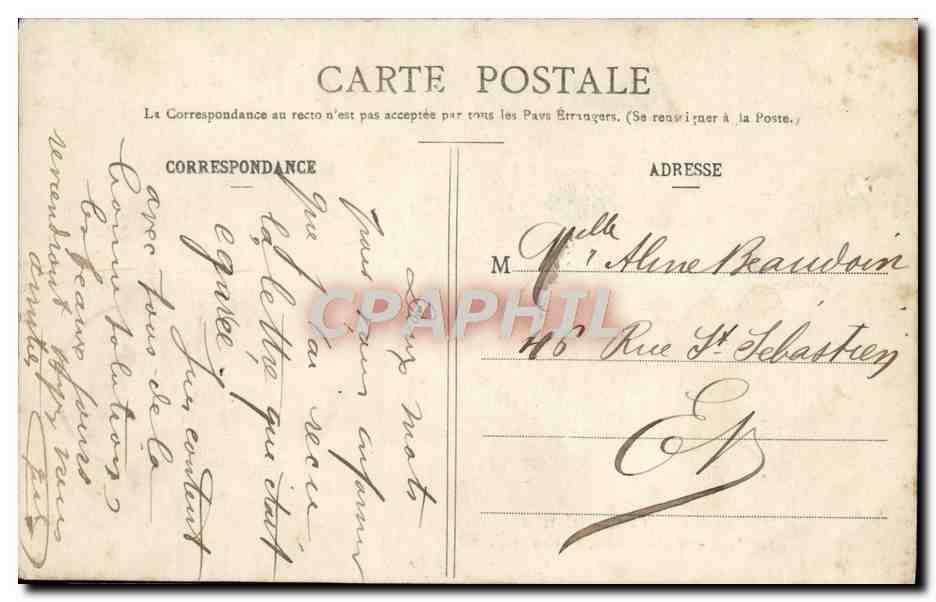 CARTE POSTALE
La Correspondance au recto n'est pas acceptée par tous les Pays Étrangers. (Se renseigner à la Poste.)
CORRESPONDANCE
Deux mots
pour vous informer
que j'ai recu
la lettre que était
egarée
Je suis content
avec tous de la
bonne solution
les beaux jours
reviendront
amitiés
ADRESSE
M
Melle Aline Beaudoin
46 Rue St. Sébastien
EV
CPAPHIL